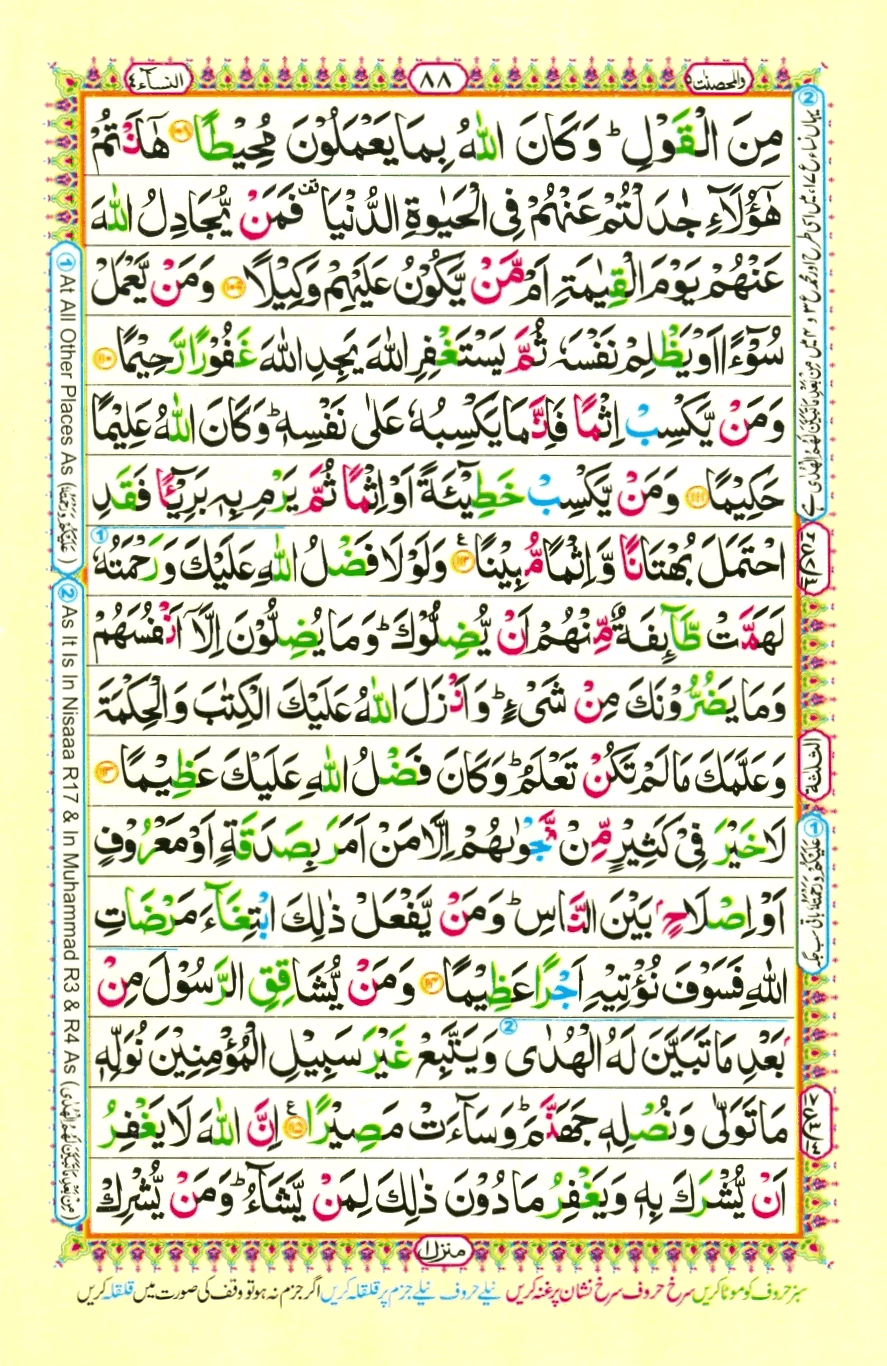 والمحصنت ٥
٨٨
النسآء ٤
مِنَ الْقَوْلِ ؕ وَكَانَ اللّٰهُ بِمَا يَعْمَلُوْنَ مُحِيْطًا ﴿۱۰۸﴾ هٰۤاَنْتُمْ
هٰۤؤُلَآءِ جٰدَلْتُمْ عَنْهُمْ فِى الْحَيٰوةِ الدُّنْيَا ۟ فَمَنْ يُّجَادِلُ اللّٰهَ
عَنْهُمْ يَوْمَ الْقِيٰمَةِ اَمْ مَّنْ يَّكُوْنُ عَلَيْهِمْ وَكِيْلًا ﴿۱۰۹﴾ وَمَنْ يَّعْمَلْ
سُوْٓءًا اَوْ يَظْلِمْ نَفْسَهٗ ثُمَّ يَسْتَغْفِرِ اللّٰهَ يَجِدِ اللّٰهَ غَفُوْرًا رَّحِيْمًا ﴿۱۱۰﴾
وَمَنْ يَّكْسِبْ اِثْمًا فَاِنَّمَا يَكْسِبُهٗ عَلٰى نَفْسِهٖ ؕ وَكَانَ اللّٰهُ عَلِيْمًا
حَكِيْمًا ﴿۱۱۱﴾ وَمَنْ يَّكْسِبْ خَطِيْٓئَةً اَوْ اِثْمًا ثُمَّ يَرْمِ بِهٖ بَرِيْٓئًا فَقَدِ
احْتَمَلَ بُهْتَانًا وَّاِثْمًا مُّبِيْنًا ﴿۱۱۲﴾ وَلَوْلَا فَضْلُ اللّٰهِ عَلَيْكَ وَرَحْمَتُهٗ
لَهَمَّتْ طَّآئِفَةٌ مِّنْهُمْ اَنْ يُّضِلُّوْكَ ؕ وَمَا يُضِلُّوْنَ اِلَّاۤ اَنْفُسَهُمْ
وَمَا يَضُرُّوْنَكَ مِنْ شَىْءٍ ؕ وَاَنْزَلَ اللّٰهُ عَلَيْكَ الْكِتٰبَ وَالْحِكْمَةَ
وَعَلَّمَكَ مَا لَمْ تَكُنْ تَعْلَمُ ؕ وَكَانَ فَضْلُ اللّٰهِ عَلَيْكَ عَظِيْمًا ﴿۱۱۳﴾
لَا خَيْرَ فِىْ كَثِيْرٍ مِّنْ نَّجْوٰىهُمْ اِلَّا مَنْ اَمَرَ بِصَدَقَةٍ اَوْ مَعْرُوْفٍ
اَوْ اِصْلَاحٍۭ بَيْنَ النَّاسِ ؕ وَمَنْ يَّفْعَلْ ذٰلِكَ ابْتِغَآءَ مَرْضَاتِ
اللّٰهِ فَسَوْفَ نُؤْتِيْهِ اَجْرًا عَظِيْمًا ﴿۱۱۴﴾ وَمَنْ يُّشَاقِقِ الرَّسُوْلَ مِنْۢ
بَعْدِ مَا تَبَيَّنَ لَهُ الْهُدٰى وَيَتَّبِعْ غَيْرَ سَبِيْلِ الْمُؤْمِنِيْنَ نُوَلِّهٖ
مَا تَوَلّٰى وَنُصْلِهٖ جَهَنَّمَ ؕ وَسَآءَتْ مَصِيْرًا ﴿۱۱۵﴾ اِنَّ اللّٰهَ لَا يَغْفِرُ
اَنْ يُّشْرَكَ بِهٖ وَيَغْفِرُ مَا دُوْنَ ذٰلِكَ لِمَنْ يَّشَآءُ ؕ وَمَنْ يُّشْرِكْ
منزل ١
سبز حروف کو موٹا کریں سرخ حروف سرخ نشان پر غنہ کریں نیلے حروف نیلے جزم پر قلقلہ کریں اگر جزم نہ ہو تو وقف کی صورت میں قلقلہ کریں
① At All Other Places As (عَلَيْكُمْ وَرَحْمَتُهٗ)
② As It Is In Nisaaa R17 & In Muhammad R3 & R4 As (مِنْۢ بَعْدِ مَا تَبَيَّنَ لَهُمُ الْهُدٰى)
الثلثة
① عَلَيْكُمْ وَرَحْمَتُهٗ باقی سب جگہ